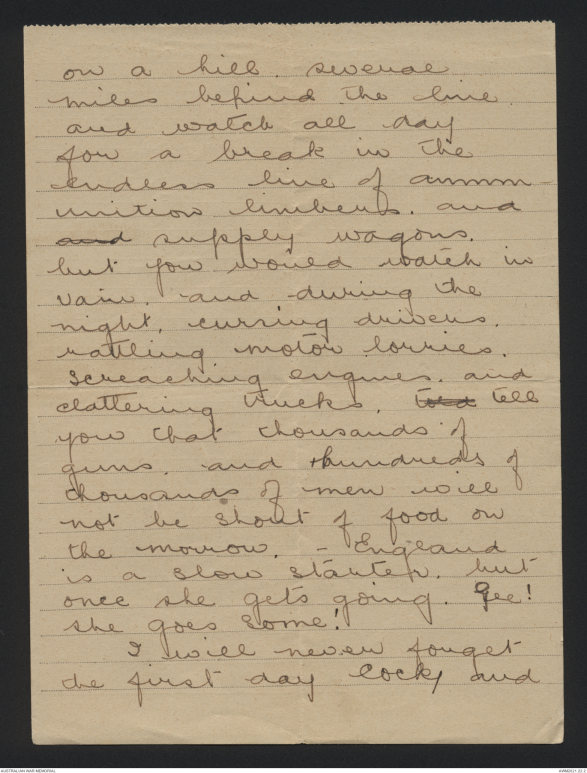 on a hill. several
miles behind the line
and watch all day
for a break in the
endless line of ammm-
unition limbers. and
and supply wagons.
but you would watch in
vain. and during the
night, cursing drivers.
rattling motor lorries.
screaching engines. and
clattering trucks, told tell
you that thousands of
guns. and hundreds of
thousands of men will
not be short of food on
the morrow. - England
is a slow starter. but
once she gets going. Gee!
she goes some!
I will never forget
the first day Cock, and
AUSTRALIAN WAR MEMORIAL